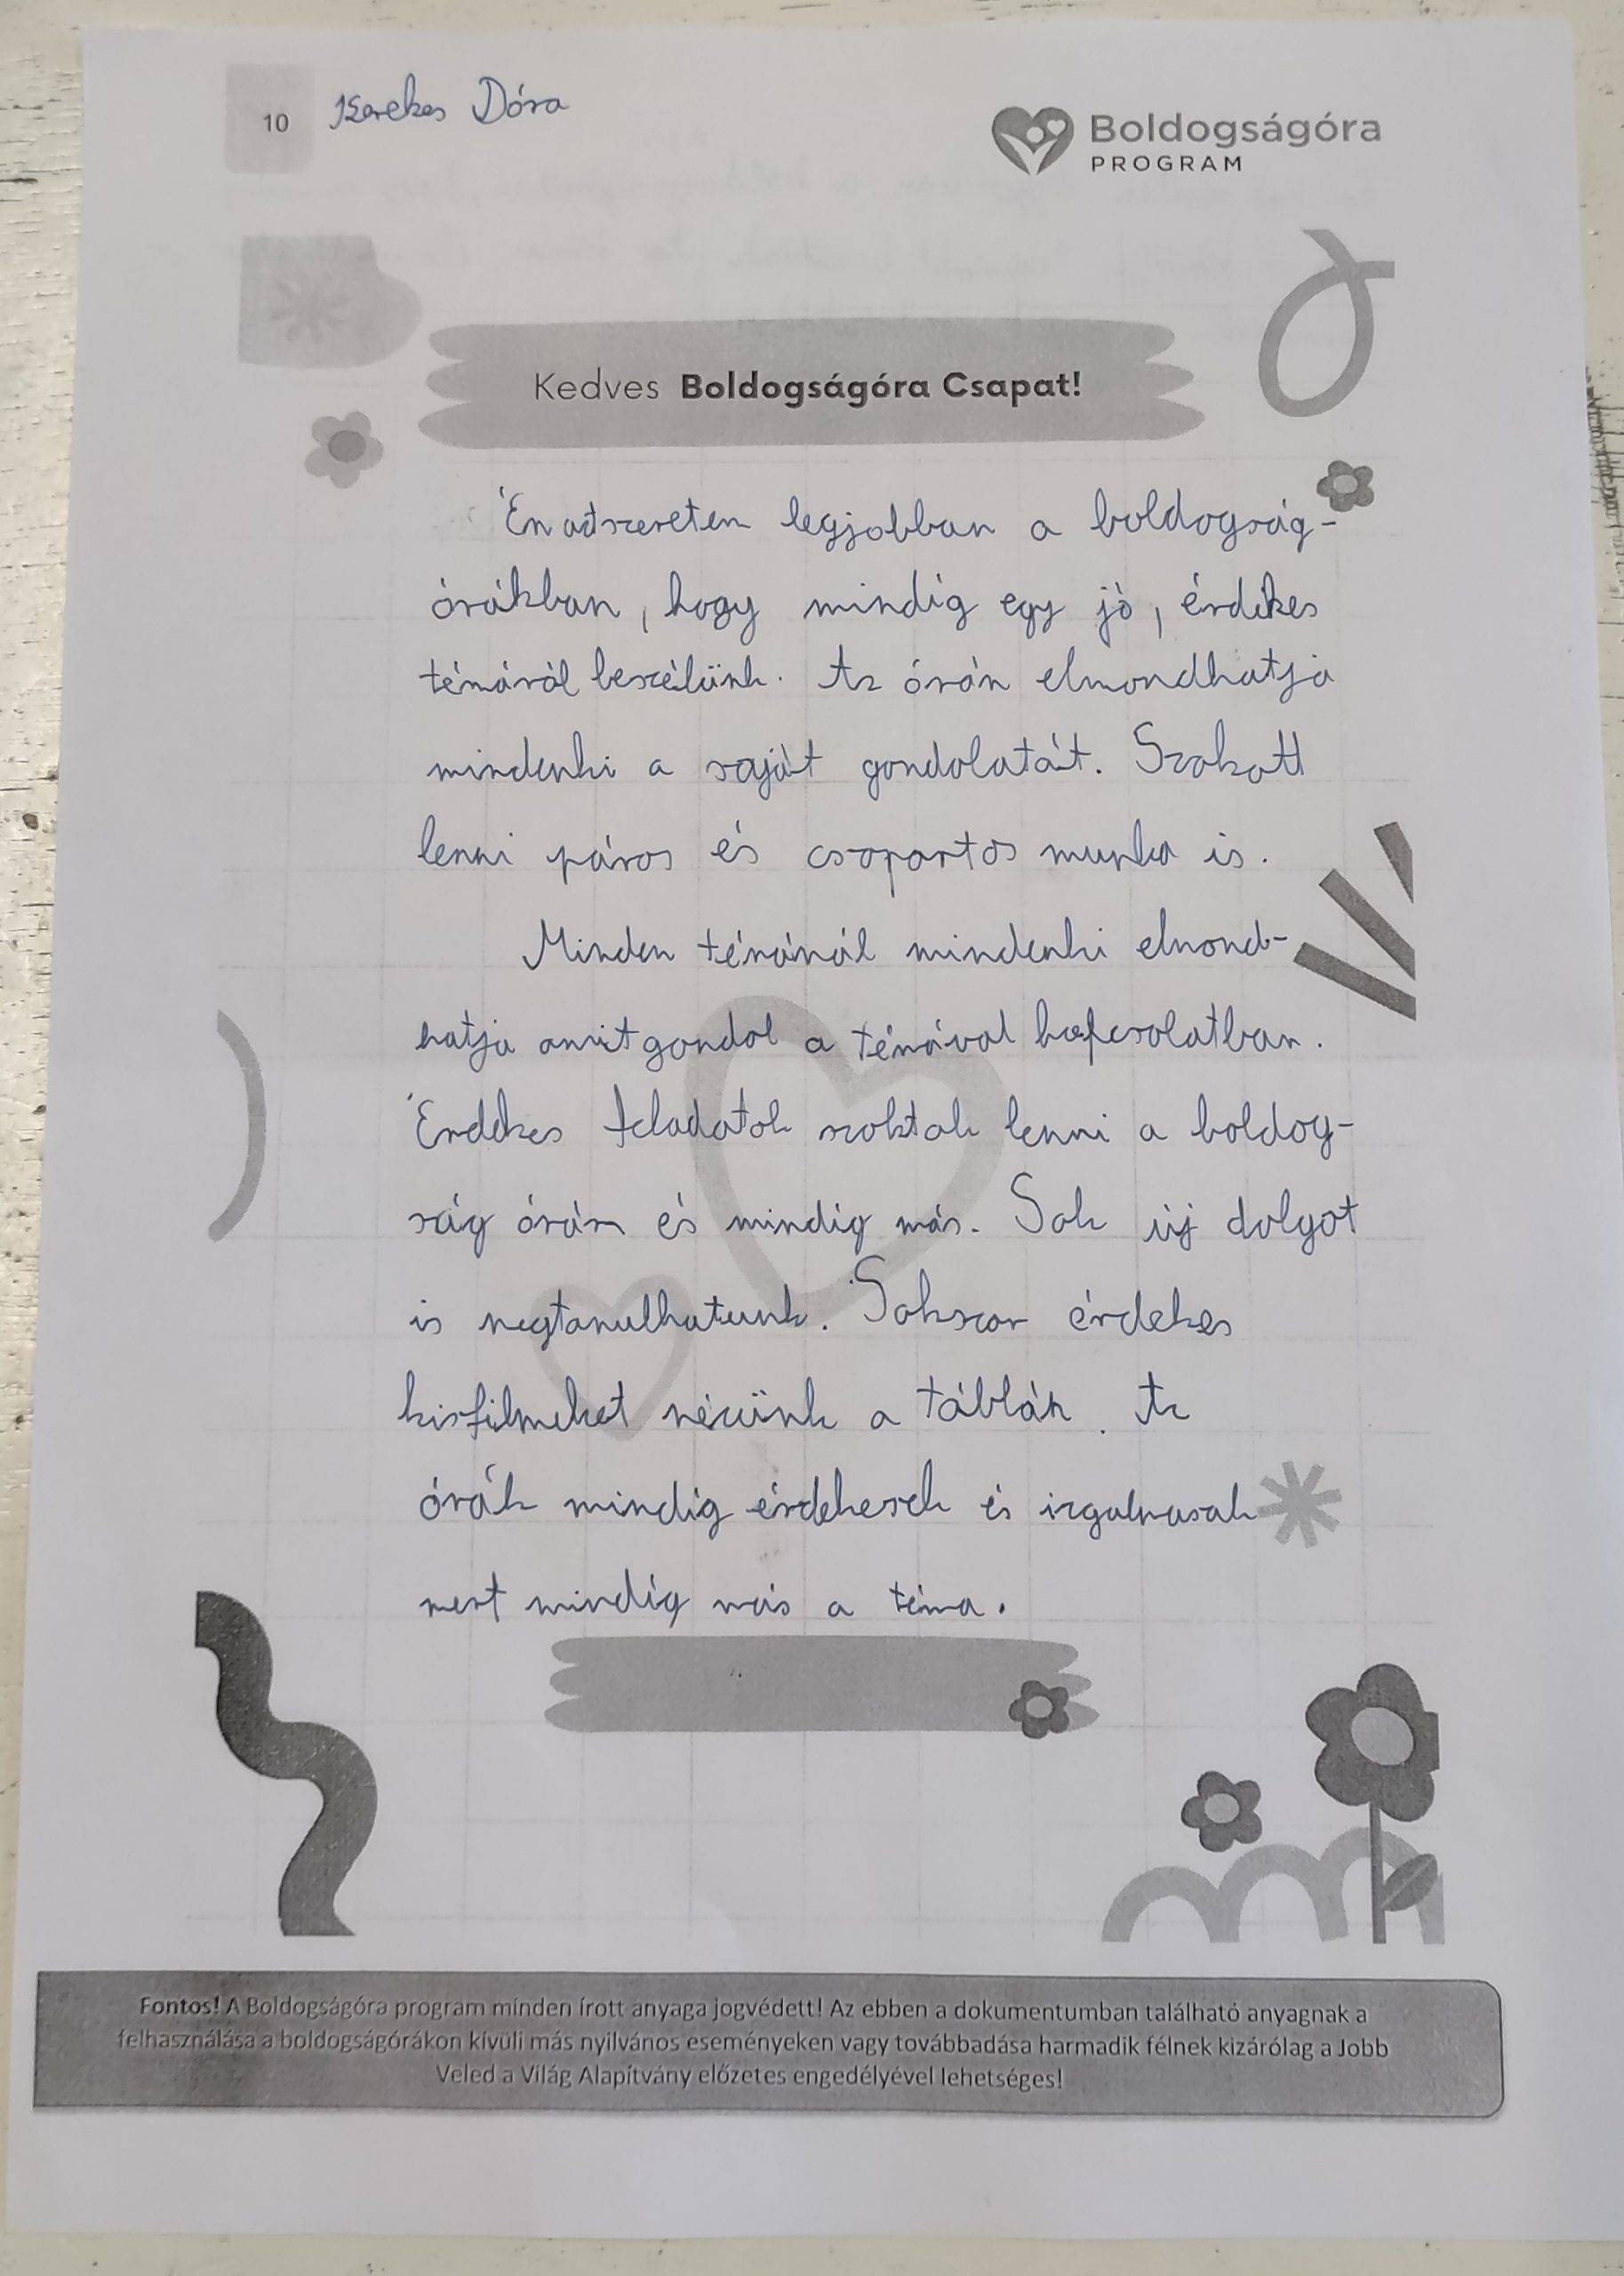 10 Kerekes Dóra
Boldogságóra
PROGRAM
Kedves Boldogságóra Csapat!
Én aztszeretem legjobban a boldogság-
órákban, hogy mindig egy jó, érdekes
témáról beszélünk. Az órán elmondhatja
mindenki a saját gondolatát. Szokott
lenni páros és csoportos munka is.
Minden témánál mindenki elmond-
hatja amit gondol a témával kapcsolatban.
Érdekes feladatok szoktak lenni a boldog-
ság órán és mindig más. Sok új dolgot
is megtanulhatunk. Sokszor érdekes
kisfilmeket nézünk a táblán. Az
órák mindig érdekesek és izgalmasak
mert mindig más a téma.
Fontos! A Boldogságóra program minden írott anyaga jogvédett! Az ebben a dokumentumban található anyagnak a
felhasználása a boldogságórákon kívüli más nyilvános eseményeken vagy továbbadása harmadik félnek kizárólag a Jobb
Veled a Világ Alapítvány előzetes engedélyével lehetséges!